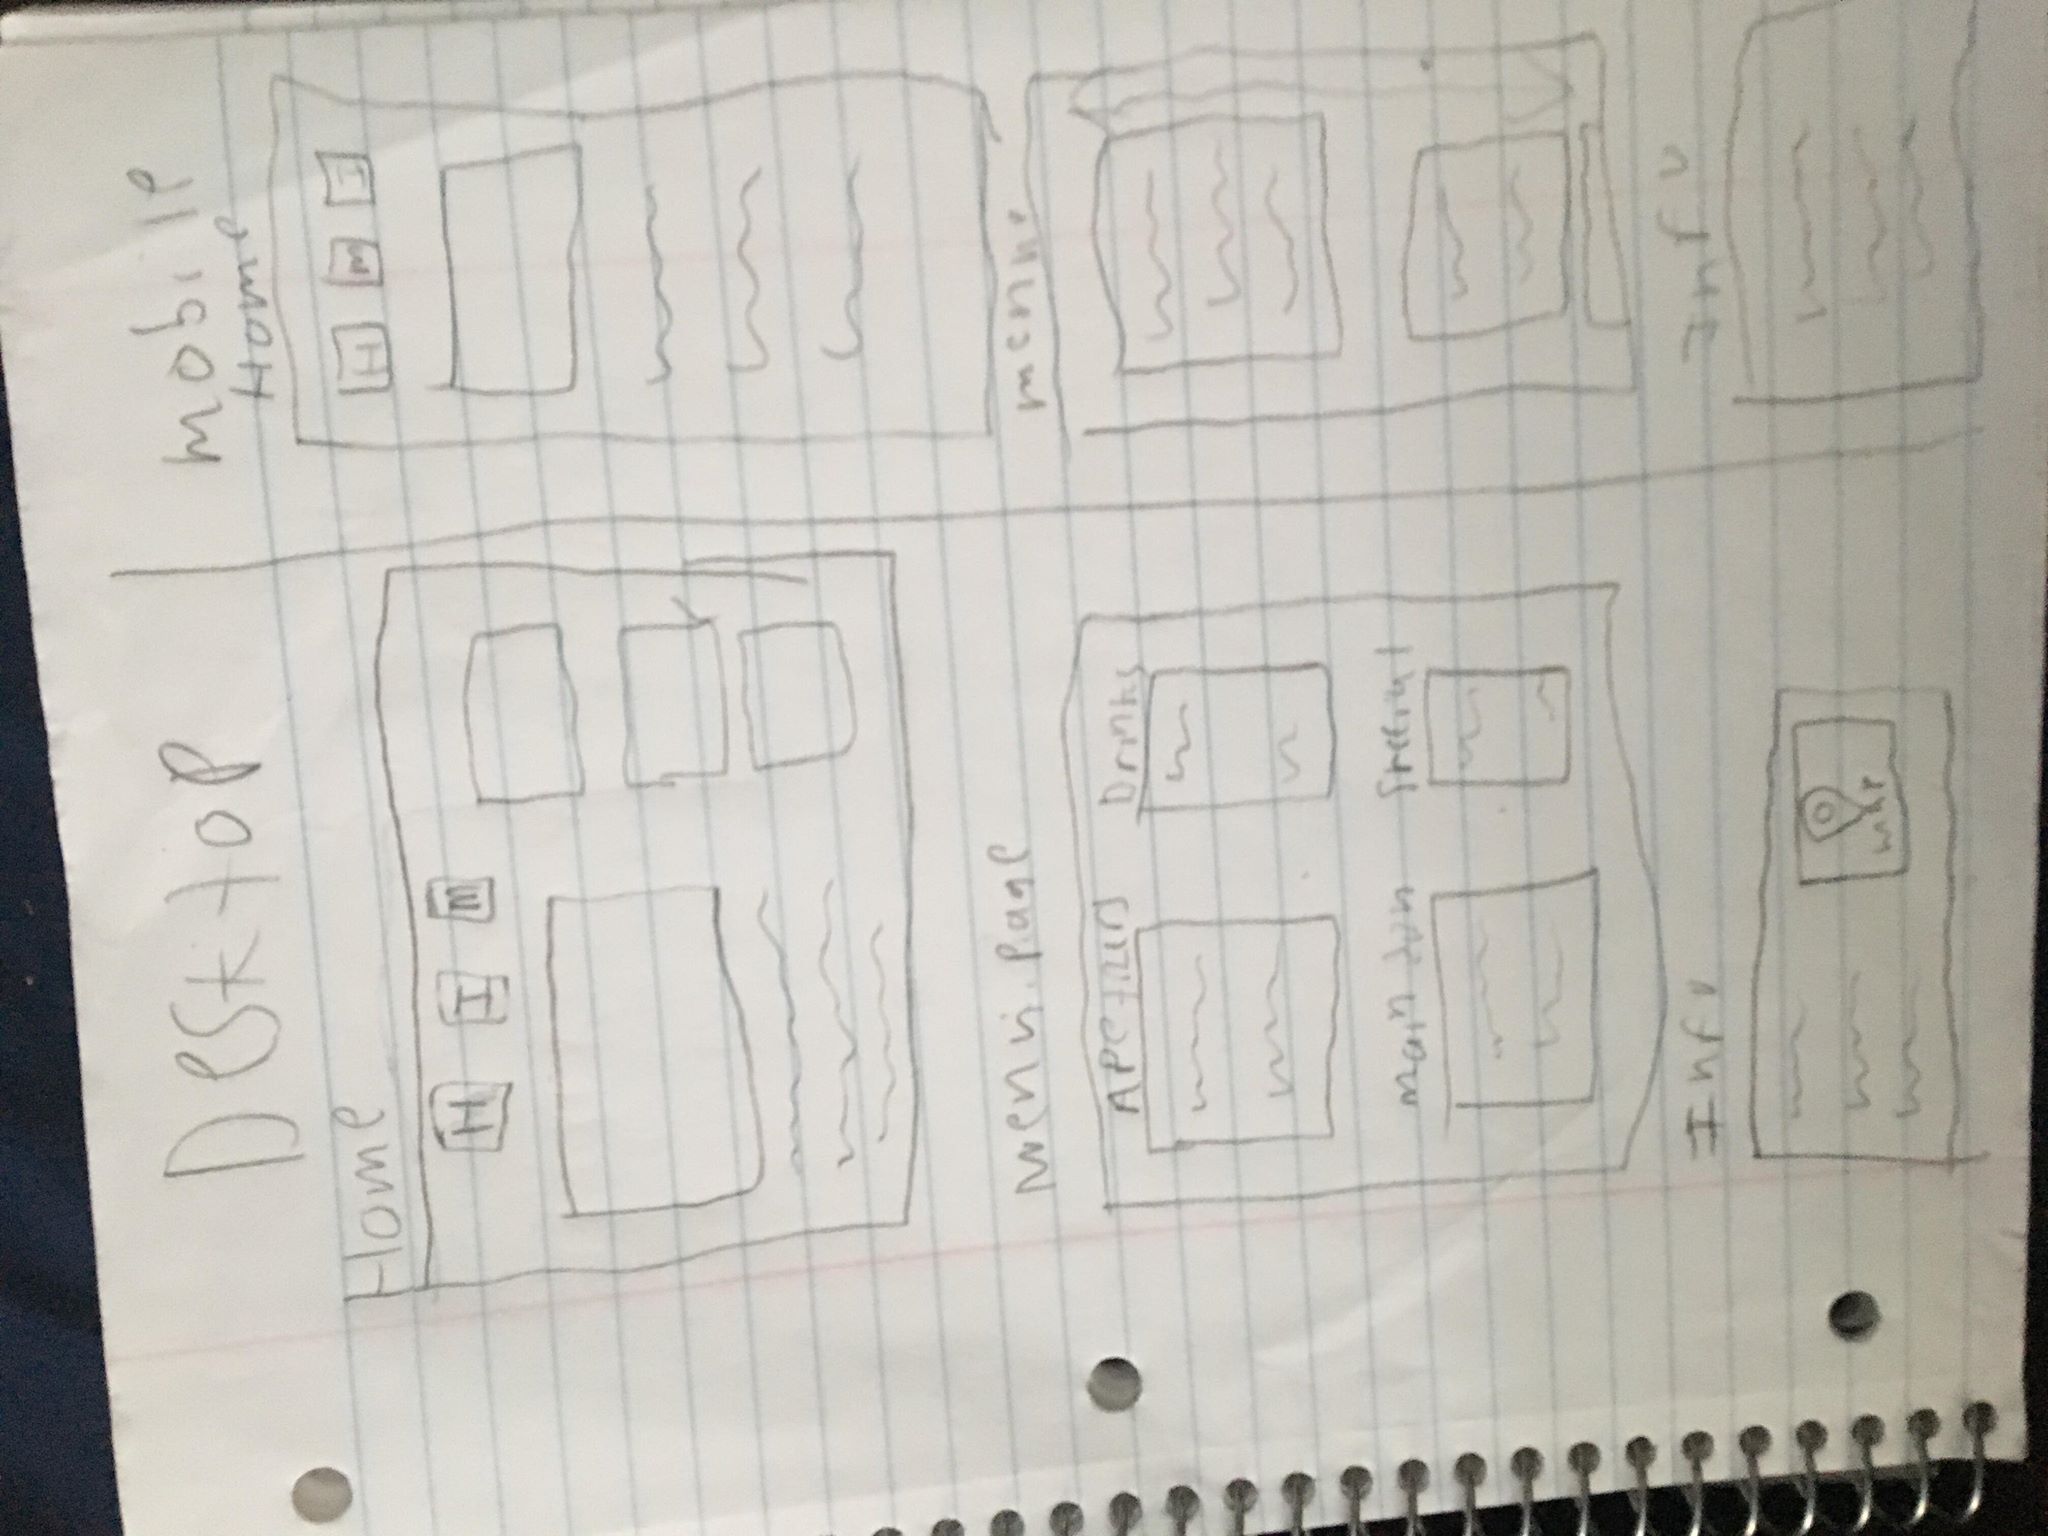 Desktop
Home
H I M
Menu Page
Appetizers Drinks
Special
Info
Mobile
Home
H M I
menu
Info